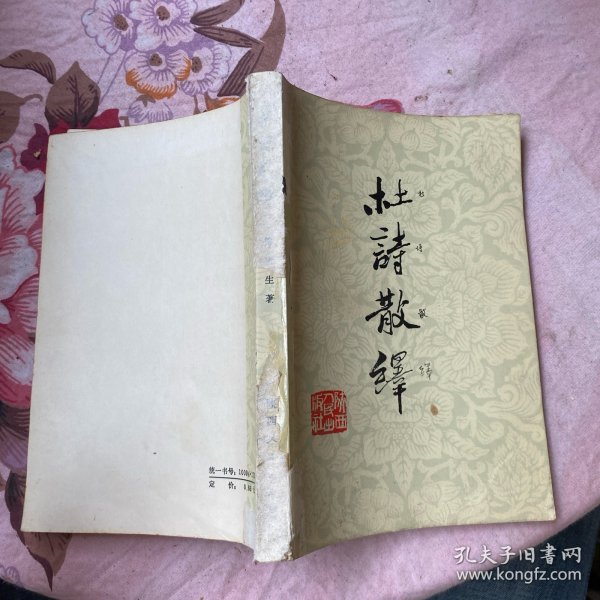 杜詩散繹
陕西
人民出
版社
生著
统一书号：1009
定 价：0.
孔夫子旧书网
www.kongfz.com